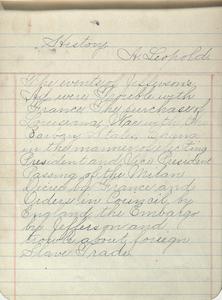 History
A. Leopold
The events of Jefferson's
Ad. were Trouble with
France The purchase of
Louisiana War with the
Barbary States Change
in the manner of electing
President and Vice President
Passing of the Milan
Decree by France and
Orders in Council by
England the Embargo
by Jefferson and
trouble about foreign
Slave Trade.